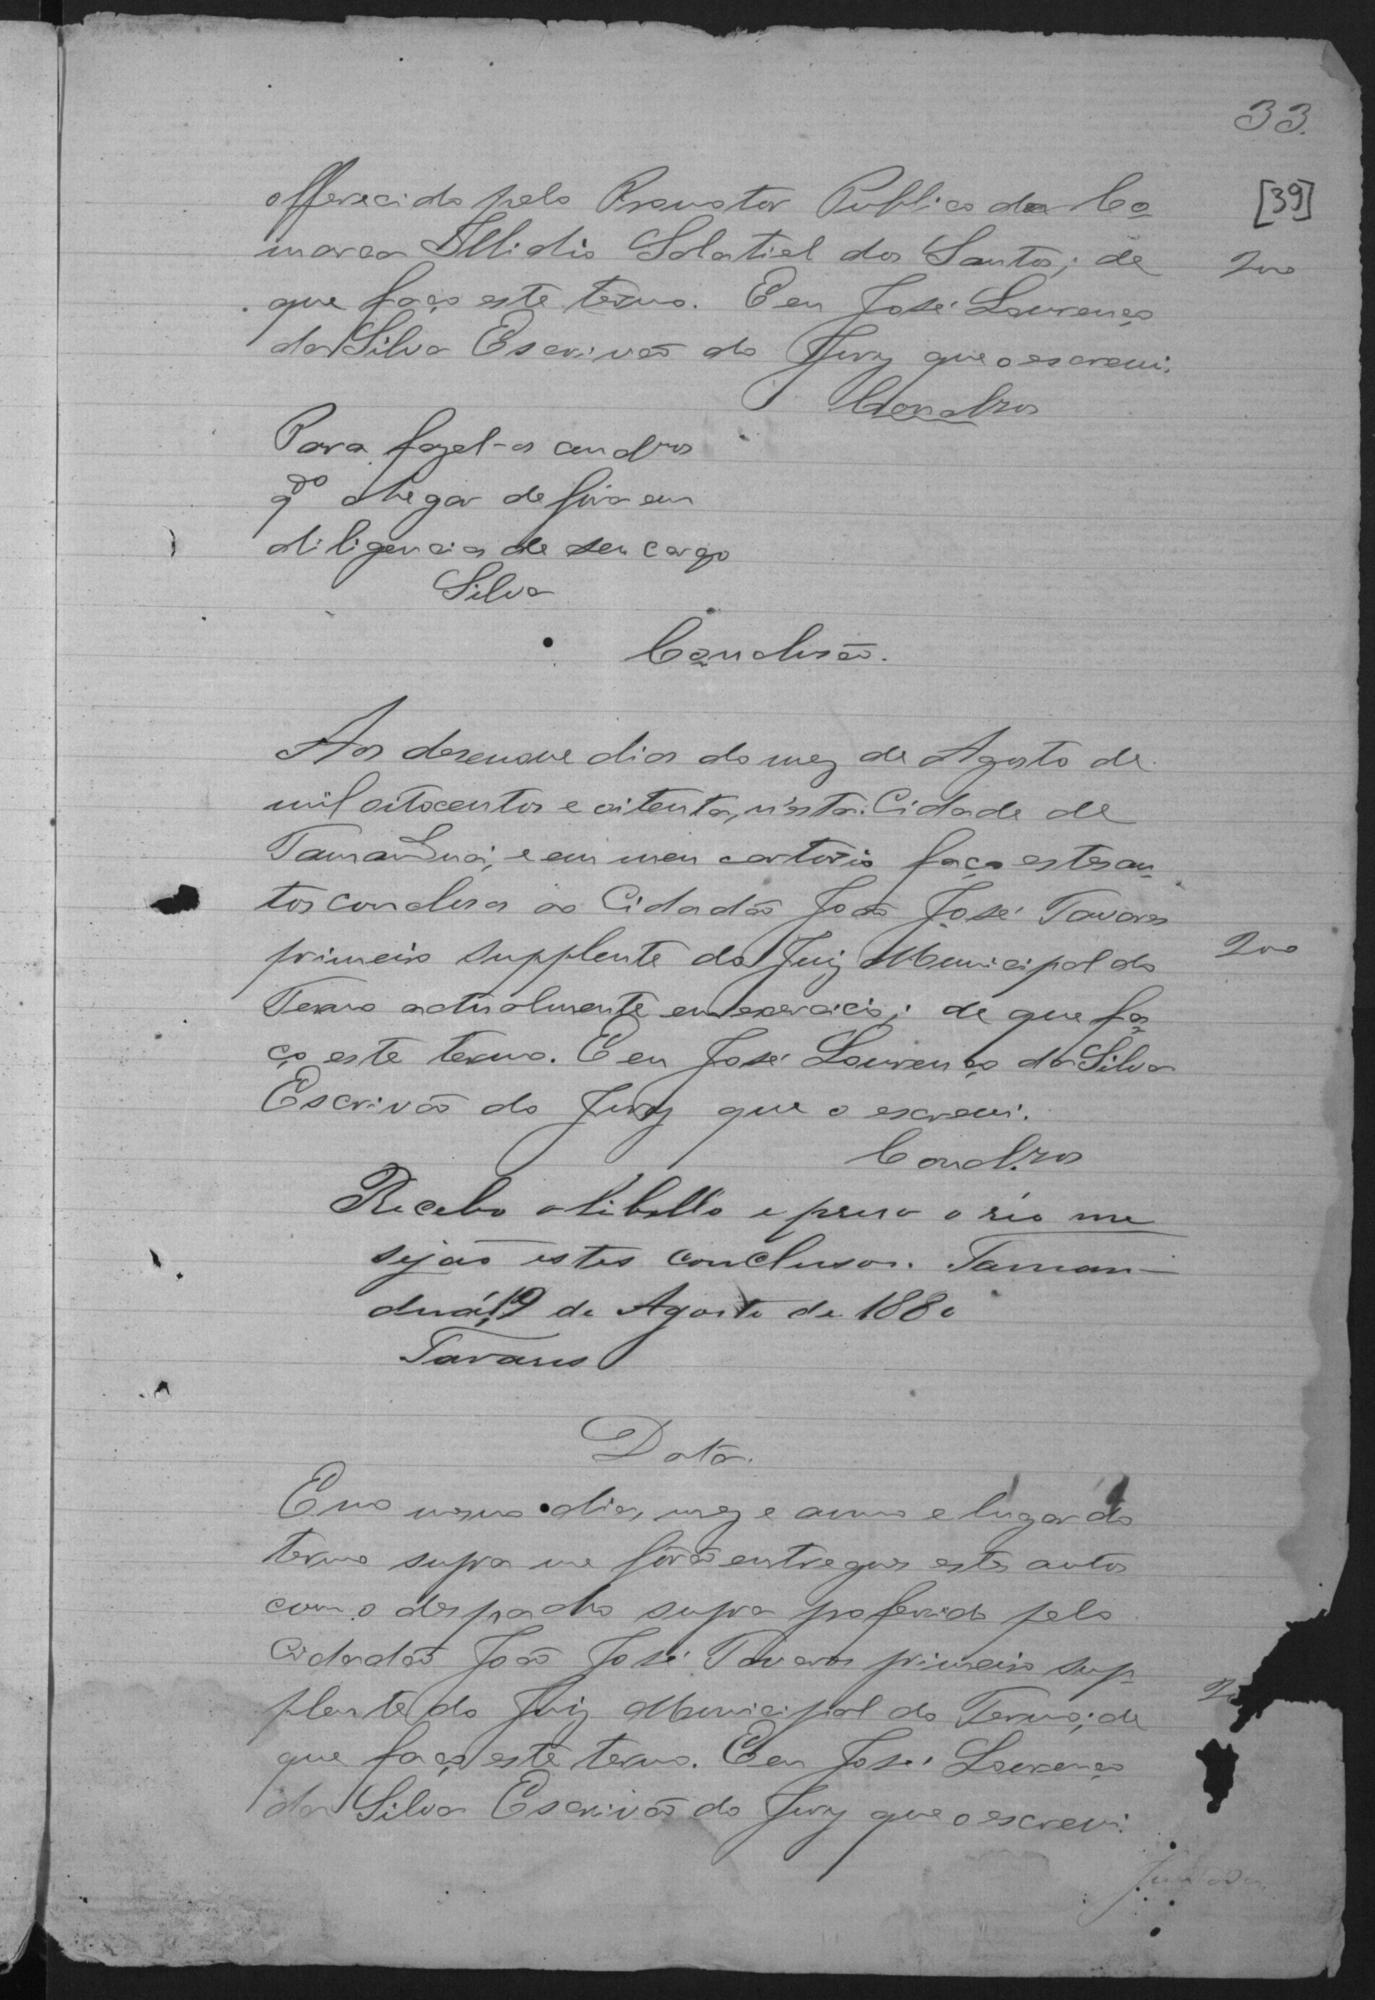 33.
[39]
offerecido pelo Promotor Publico da Co
marca Illidio Salatiel dos Santos; de
200
que faço este termo. E eu José Lourenço
da Silva Escrivão do Jury que o escrevi.
Concl.zos
Para fazel-os concl.zos
q.do chegar de fóra em
diligencia de seu cargo
Silva
Conclusão.
Aos desenove dias do mez de Agosto de
mil oitocentos e oitenta, n'esta Cidade de
Tamanduá, e em meu cartorio faço estes au
tos conclusos ao Cidadão João José Tavares
primeiro supplente do Juiz Municipal do
200
Termo actualmente em exercicio; de que fa
ço este termo. E eu José Lourenço da Silva
Escrivão do Jury que o escrevi.
Concl.zos
Recebo o libello e preso o réo me
sejão estes conclusos. Taman-
duá, 19 de Agosto de 1880
Tavares
Data.
E no mesmo dia, mez e anno e lugar do
termo supra me forão entregues estes autos
com o despacho supra proferido pelo
Cidadão João José Tavares primeiro sup
plente do Juiz Municipal do Termo; de
que faço este termo. E eu José Lourenço
da Silva Escrivão do Jury que o escrevi.
Juntada